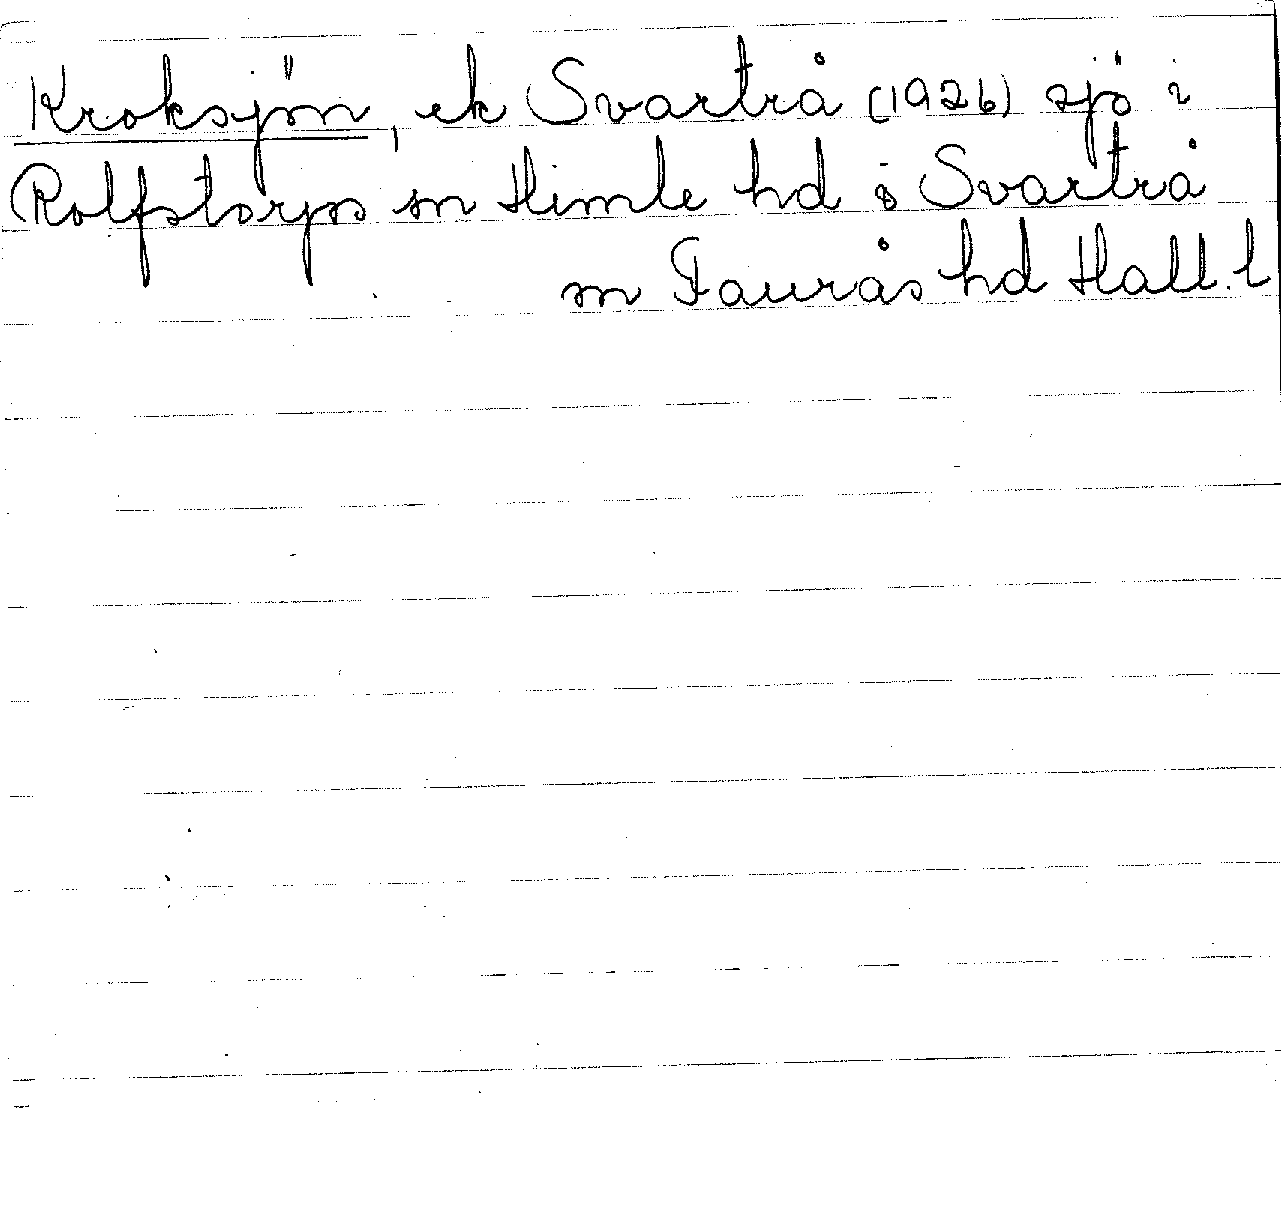 Kroksjön, ek Svartrå (1926) sjö i
Rolfstorps sn Himle hd o Svartrå
sn Faurås hd Hall. l